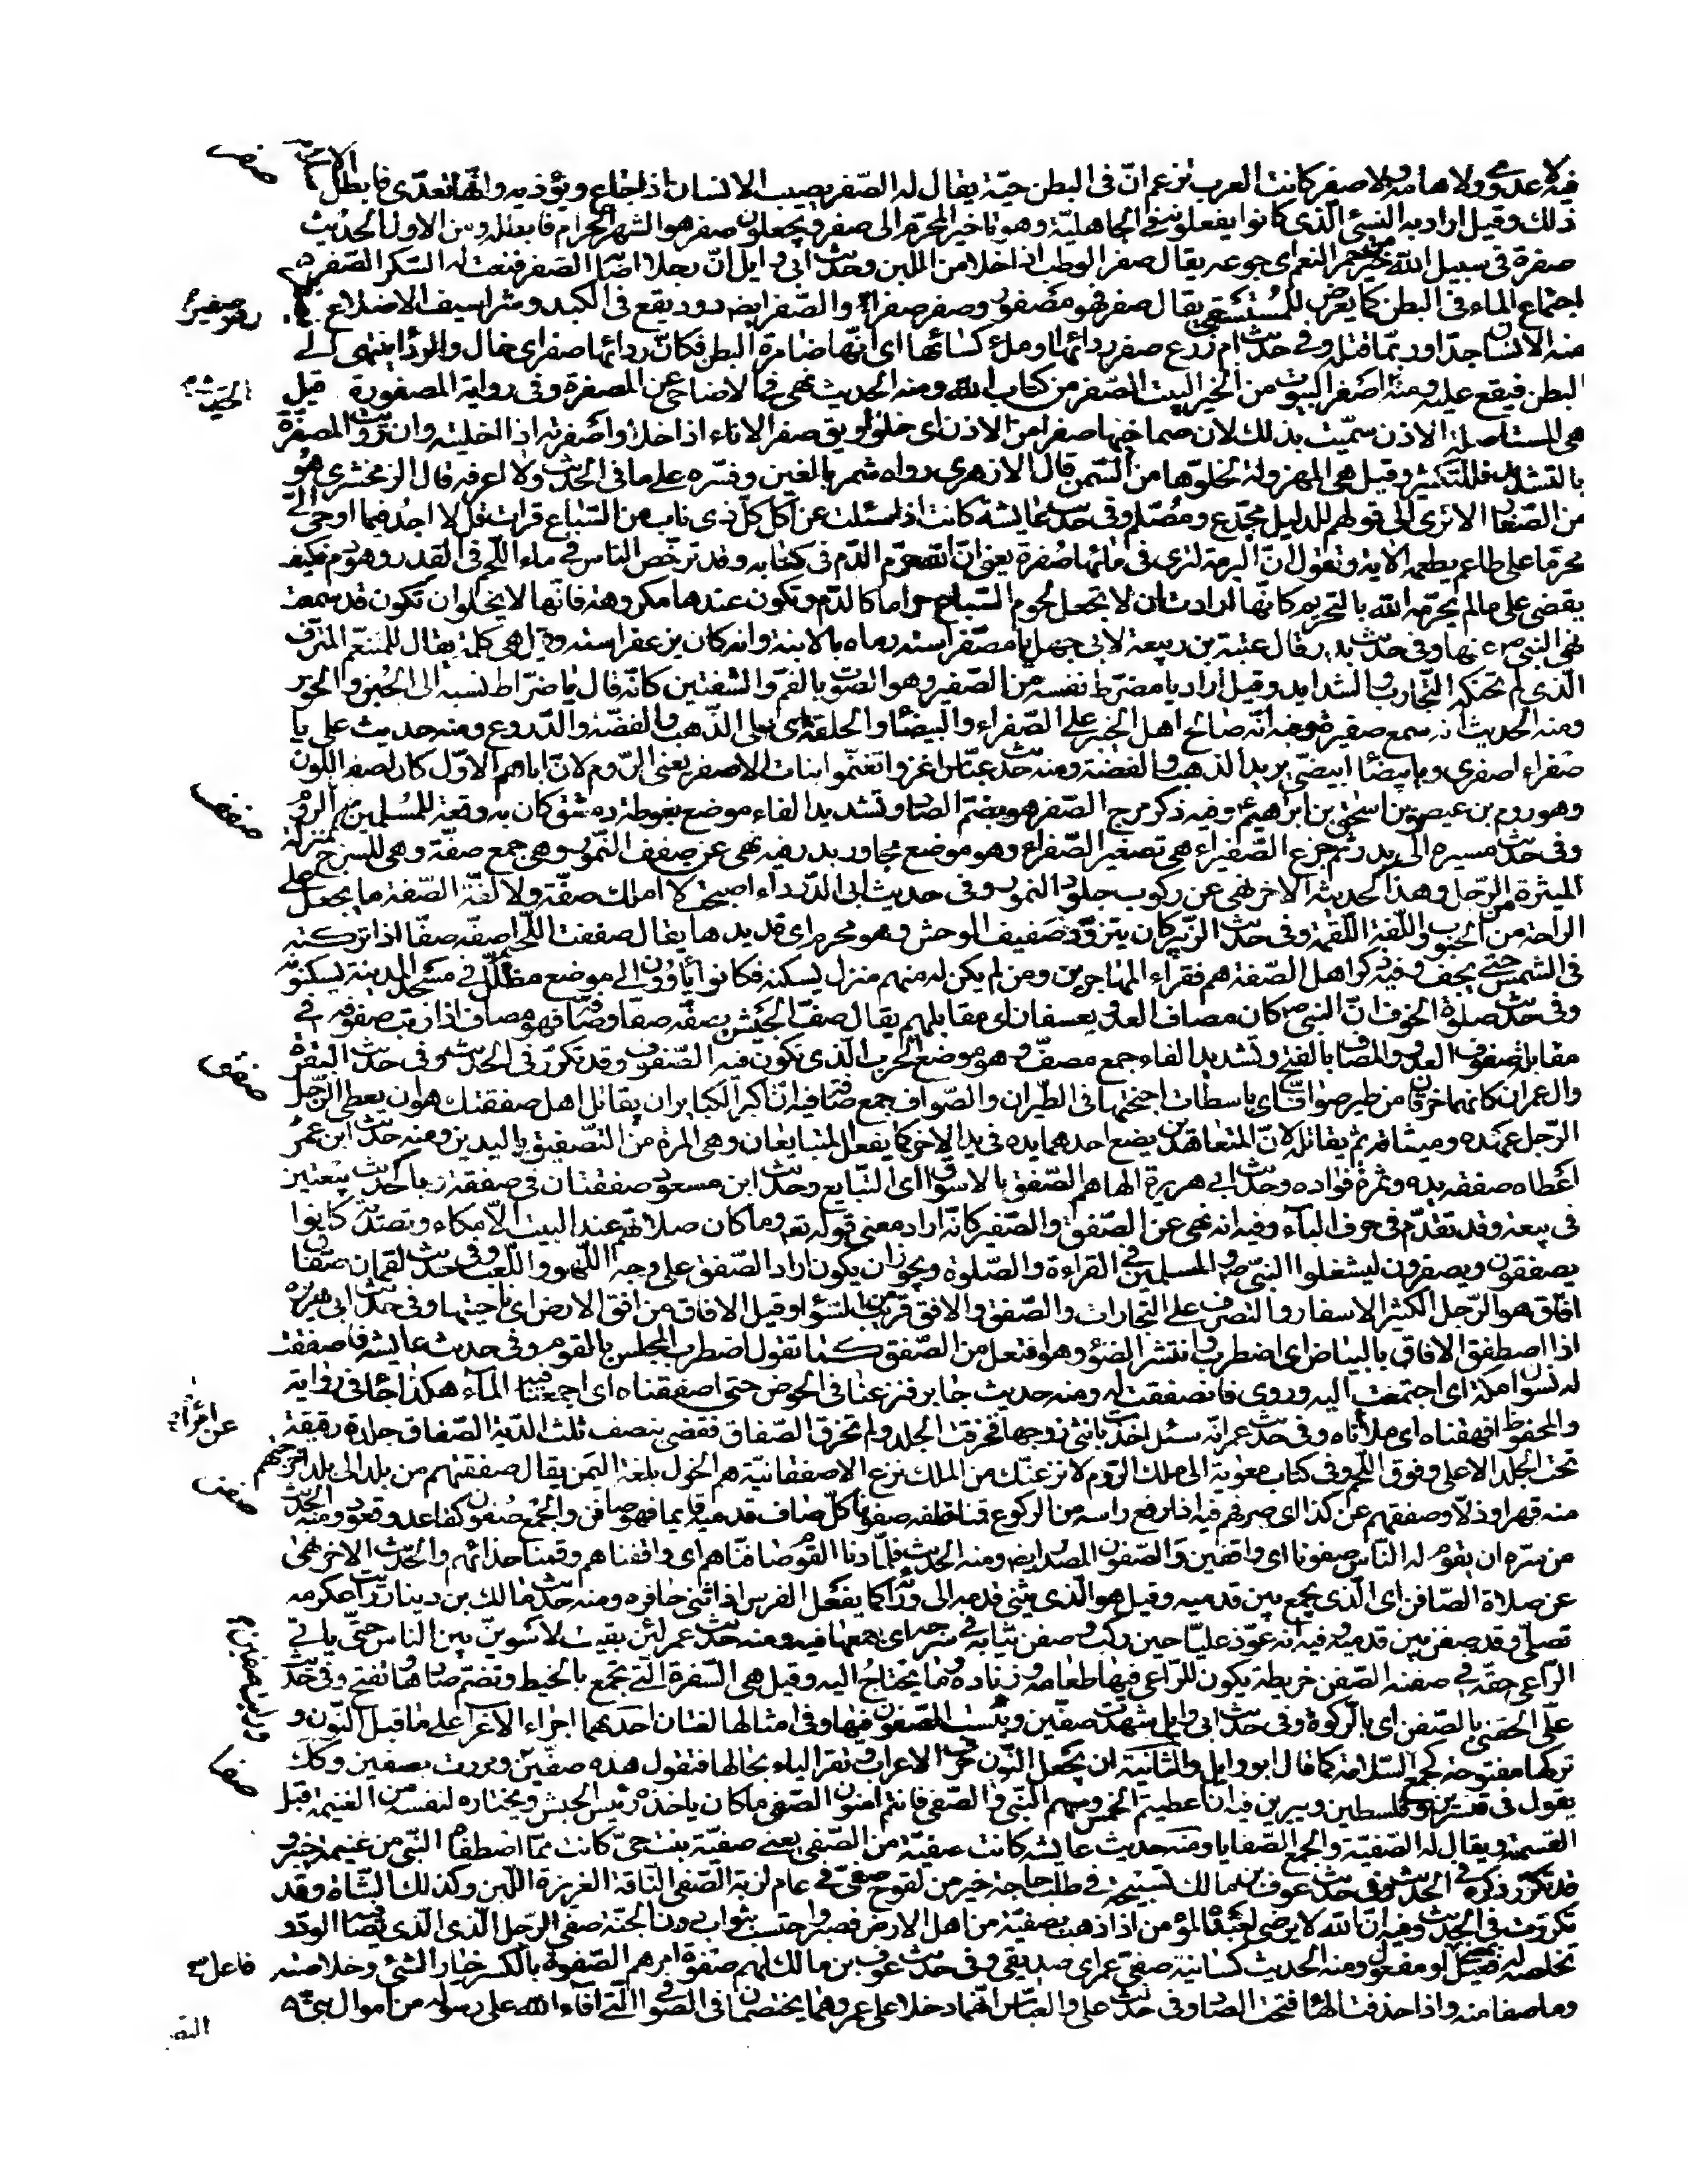 فيه لا عدوى ولا هامة ولا صفر كانت العرب تزعم انّ فى البطن حيّة يقال له الصّفر يصيب الانسان اذا جاع ويؤذيه وانّها تعدّى فابطل الاسلام
ذلك وقيل اراد به النسئ الّذى كانوا يفعلونه فى الجاهليّة وهو تاخير المحرّم الى صفر ويجعلون صفر هو الشهر الحرام فابطله ومن الاول الحديث
صفرة فى سبيل الله خير من حمر النعم اى جوعه يقال صفر الوطب اذا خلا من اللبن وحديث ابى وايل انّ رجلا اصابه الصّفر فنعت له السّكر الصّفر
اجتماع الماء فى البطن كما يعرض للمُستَسقى يقال صفر فهو مصفور وصفر صفرا والصّفر ايضا دود يقع فى الكبد وشراسيف الاضلاع فيصفر
منه الانسان جدّا وربّما قتله وفى حديث ام زرع صفر ردائها وملؤ كسائها اى انّها ضامرة البطن فكانّ ردائها صفر اى خال والردا ينتهى الى
البطن فيقع عليه ومنه اصفر البيوت من الخير البيت الصّفر من كتاب الله ومنه الحديث نهى فى الاضاحى عن المصفرة وفى رواية المصفورة قيل
هى المستاصلة الاذن سمّيت بذلك لان صماخيها صفرا من الاذن اى خلوا ويق صفر الاناء اذا خلا واصفرته اذا اخليته وان رويت المصفّرة
بالتشديد فللتكثير وقيل هى المهزولة لخلوّها من السّمن قال الازهرى رواه شمر بالغين وفسّره على ما فى الحديث ولا اعرفه قال الزمخشرى هو
من الصّغار الا ترى الى قولهم للذليل مجدّع ومُصلّم وفى حديث عايشة كانت اذا سئلت عن اكل كلّ ذى ناب من السّباع قرات قل لا اجد فيما اوحى الىّ
محرّما على طاعم يطعمه الاية وتقول انّ البرمة لترى فى مائها صُفرة يعنى انّ الله حرّم الدّم فى كتابه وقد ترخّص الناس فى ماء اللّحم فى القدر وهو دم فكيف
يقضى على ما لم يحرّمه الله بالتحريم كانّها ارادت ان لا تجعل لحوم السّباع حراما كالدّم وتكون عندها مكروهة فانّها لا يخلوا ان تكون قد سمعت
نهى النبى ص عنها وفى حديث بدر قال عتبة بن ربيعة لابى جهل يا مصفّر استه رماه بالابنة وانه كان يزعفر استه وقيل هى كلمة يقال للمتنعّم المترف
الّذى لم تحنكه التّجارب والشدايد وقيل اراد يا مضرّط نفسه من الصّفير وهو الصّوت بالفم والشفتين كانّه قال يا ضرّاط نسبه الى الجُبن والخور
ومنه الحديث انه سمع صفيره وفيه انّه صالح اهل الخيبر على الصّفراء والبيضا والحلقة اى على الذّهب والفضّة والدّروع ومنه حديث على يا
صفراء اصفرى ويا بيضا ابيضّى يريد الذهب والفضة ومنه حديث ابن عبّاس اغزوا تغنموا بنات الاصفر يعنى الرّوم لانّ اباهم الاوّل كان اصفر اللون
وهو روم بن عيصو بن اسحق بن ابرهيم ع وفيه ذكر مرج الصّفر هو بضمّ الصّاد وتشديد الفاء موضع بغوطة دمشق كان به وقعة للمُسلمين مع الروم
وفى حديث مسيره الى بدر ثم جزع الصّفيراء هى تصغير الصّفراء وهو موضع مجاور بدر فيه نهى عن صفف النّمور وهى جمع صفّة وهى للسرج بمنزلة
الميثرة من الرّحل وهذا الحديث الاخر نهى عن ركوب جلود النمور وفى حديث ابى الدّرداء اصبحت لا املك صفّة ولا لفّة الصّفة ما يجعل على
الراحة من الحبوب واللّفة اللّقمة وفى حديث الزّبير كان يتزوّد صفيف الوحش وهو محرم اى قديدها يقال صففت اللّحم اصفّه صفّا اذا تركته
فى الشمس حتّى يجف وفيه ذكر اهل الصّفة هم فقراء المهاجرين ومن لم يكن له منهم منزل يسكنه فكانوا ياوون الى موضع مظلّل فى مسجد المدينة يسكنونه
وفى حديث صلوة الخوف انّ النبى ص كان مصاف العدو بعسفان اى مقابلهم يقال صفّ الجيش يصفّه صفّا وصافّه فهو مصاف اذا رتب صفوفه فى
مقابل صفوف العدو والمصاف بالفتح وتشديد الفاء جمع مصفّ وهو موضع الحرب الّذى تكون فيه الصّفوف وقد تكرّر فى الحديث وفى حديث البقرة
وال عمران كانهما حزقان من طير صوافّ اى باسطات اجنحتها فى الطّيران والصّواف جمع صافّة فيه انّ اكبر الكباير ان يقاتل اهل صفقتك هو ان يعطى الرّجل
الرّجل عهده وميثاقه ثم يقاتله لانّ المتعاهدين يضع احدهما يده فى يد الاخر كما يفعل المتبايعان وهى المرة من التّصفيق باليدين ومنه حديث ابن عمر
اعطاه صفقة يده وثمرة فؤاده وحديث ابى هريرة الهاهم الصّفق بالاسواق اى التّبايع وحديث ابن مسعود صفقتان فى صفقة ربا كحديث بيعتين
فى بيعة وقد تقدّم فى حرف الباء وفيه انه نهى عن الصّفق والصّفير كانّه اراد معنى قوله تعه وما كان صلاتهم عند البيت الّا مكاء وتصدية كانوا
يصفقون ويصفرون ليشغلوا النبىّ ص والمسلمين فى القراءة والصّلوة ويجوز ان يكون اراد الصّفق على وجه اللّهو واللّعب وفى حديث لقمان صفّاق
افّاق هو الرّجل الكثير الاسفار والتصرف على التجارات والصّفق والافق قريب من السّوا وقيل الافاق من افق الارض اى ناحيتها وفى حديث ابى هريرة
اذا اصطفق الافاق بالبياض اى اضطرب وانتشر الضوء وهو افتعل من الصّفق كما تقول اضطرب المجلس بالقوم وفى حديث عايشة فاصفقت
له نسوان مكة اى اجتمعت اليه وروى فانصفقت له ومنه حديث جابر فنزعنا فى الحوض حتى اصفقناه اى جمعنا فيه الماء هكذا جاء فى رواية
والمحفوظ افهقناه اى ملأناه وفى حديث عمر انّه سئل عن امرأة اخذت بانثى زوجها فخرقت الجلد ولم تخرق الصّفاق فقضى بنصف ثلث الدّية الصّفاق جلدة رقيقة
تحت الجلد الاعلى وفوق اللّحم وفى كتاب معوية الى ملك الرّوم لانزعنّك من الملك نزع الاصفقانيّة هم الخول بلغة اليمن يقال صفقهم من بلد الى بلد اخرجهم
منه قهرا وذلّا وصفقهم عن كذا اى صرفهم فيه اذا رفع راسه من الركوع قمنا خلفه صفونا كلّ صاف قدميه قايما فهو صافن والجمع صُفون كقاعد وقعود ومنه الحديث
من سرّه ان يقوم له النّاس صفونا اى واقفين والصّفون المصدر ايضا ومنه الحديث فلمّا دنا القوم صافنّاهم اى واقفناهم وقمنا حذائهم والحديث الاخر نهى
عن صلاة الصّافن اى الّذى يجمع بين قدميه وقيل هو الّذى يثنى قدمه الى ورائه كما يفعل الفرس اذا ثنى حافره ومنه حديث مالك بن دينار رايت عكرمه
تصلى وقد صفن بين قدميه وفيه انه عوّذ عليّا حين ركب وصفن ثيابه فى سرجه اى جمعها فيه ومنه حديث عمر لئن بقيت لاسوينّ بين الناس حتّى ياتى
الرّاعى حقّه فى صفنه الصّفن خريطة يكون للرّاعى فيها طعامه وزناده وما يحتاج اليه وقيل هى السّفرة الّتى تجمع بالخيط وتضمّ صادها وتفتح وفى حديث
علىّ الحقنى بالصّفن اى بالرّكوة وفى حديث ابى وايل شهدت صفّين وبئست الصّفون فيها وفى امثالها لغتان احديهما اجراء الاعراب على ما قبل النّون و
تركها مفتوحة كجمع السّلامة كما قال ابو وايل والثانية ان يجعل النّون حرف الاعراب وتقرّ الياء بحالها فتقول هذه صفّين ومررت بصفين وكك
يقول فى قنسرين وفلسطين ويبرين فيه ان اعطيتم الخمس وسهم النّبى والصّفى فانتم امنون الصّفى ما كان ياخذه رئيس الجيش ويختاره لنفسه من الغنيمة قبل
القسمة ويقال له الصّفيّة والجمع الصّفايا ومنه حديث عايشه كانت صفيّة من الصّفى يعنى صفيّة بنت حىّ كانت ممّا اصطفاه النّبى من غنيمة خيبر و
قد تكرّر ذكره فى الحديث وفى حديث عوف بن مالك تسبيحة فى طلب حاجة خير من لقوح صفىّ فى عام لزبة الصّفى النّاقة الغزيرة اللّبن وكذلك الشّاة وقد
تكررت فى الحديث وفيه انّ الله لا يرضى لعبده المؤمن اذا ذهب بصفيّه من اهل الارض فصبر واحتسب بثواب دون الجنّة صفى الرّجل الّذى يصافيه الودّ و
تخلصه له فعيل بمعنى فاعل او مفعول ومنه الحديث كسانيه صفيّى عمر اى صديقى وفى حديث عوف بن مالك لهم صفوة امرهم الصّفوة بالكسر خيار الشّئ وخلاصته
وما صفا منه واذا حذفت الهاء فتحت الصّاد وفى حديث على والعبّاس انّهما دخلا على عمر وهما يختصمان فى الصّوافى الّتى افاء الله على رسوله من اموال بنى
صفر
صفف
صفق
عن امرأة
صفن
صفا
فاعل
النض